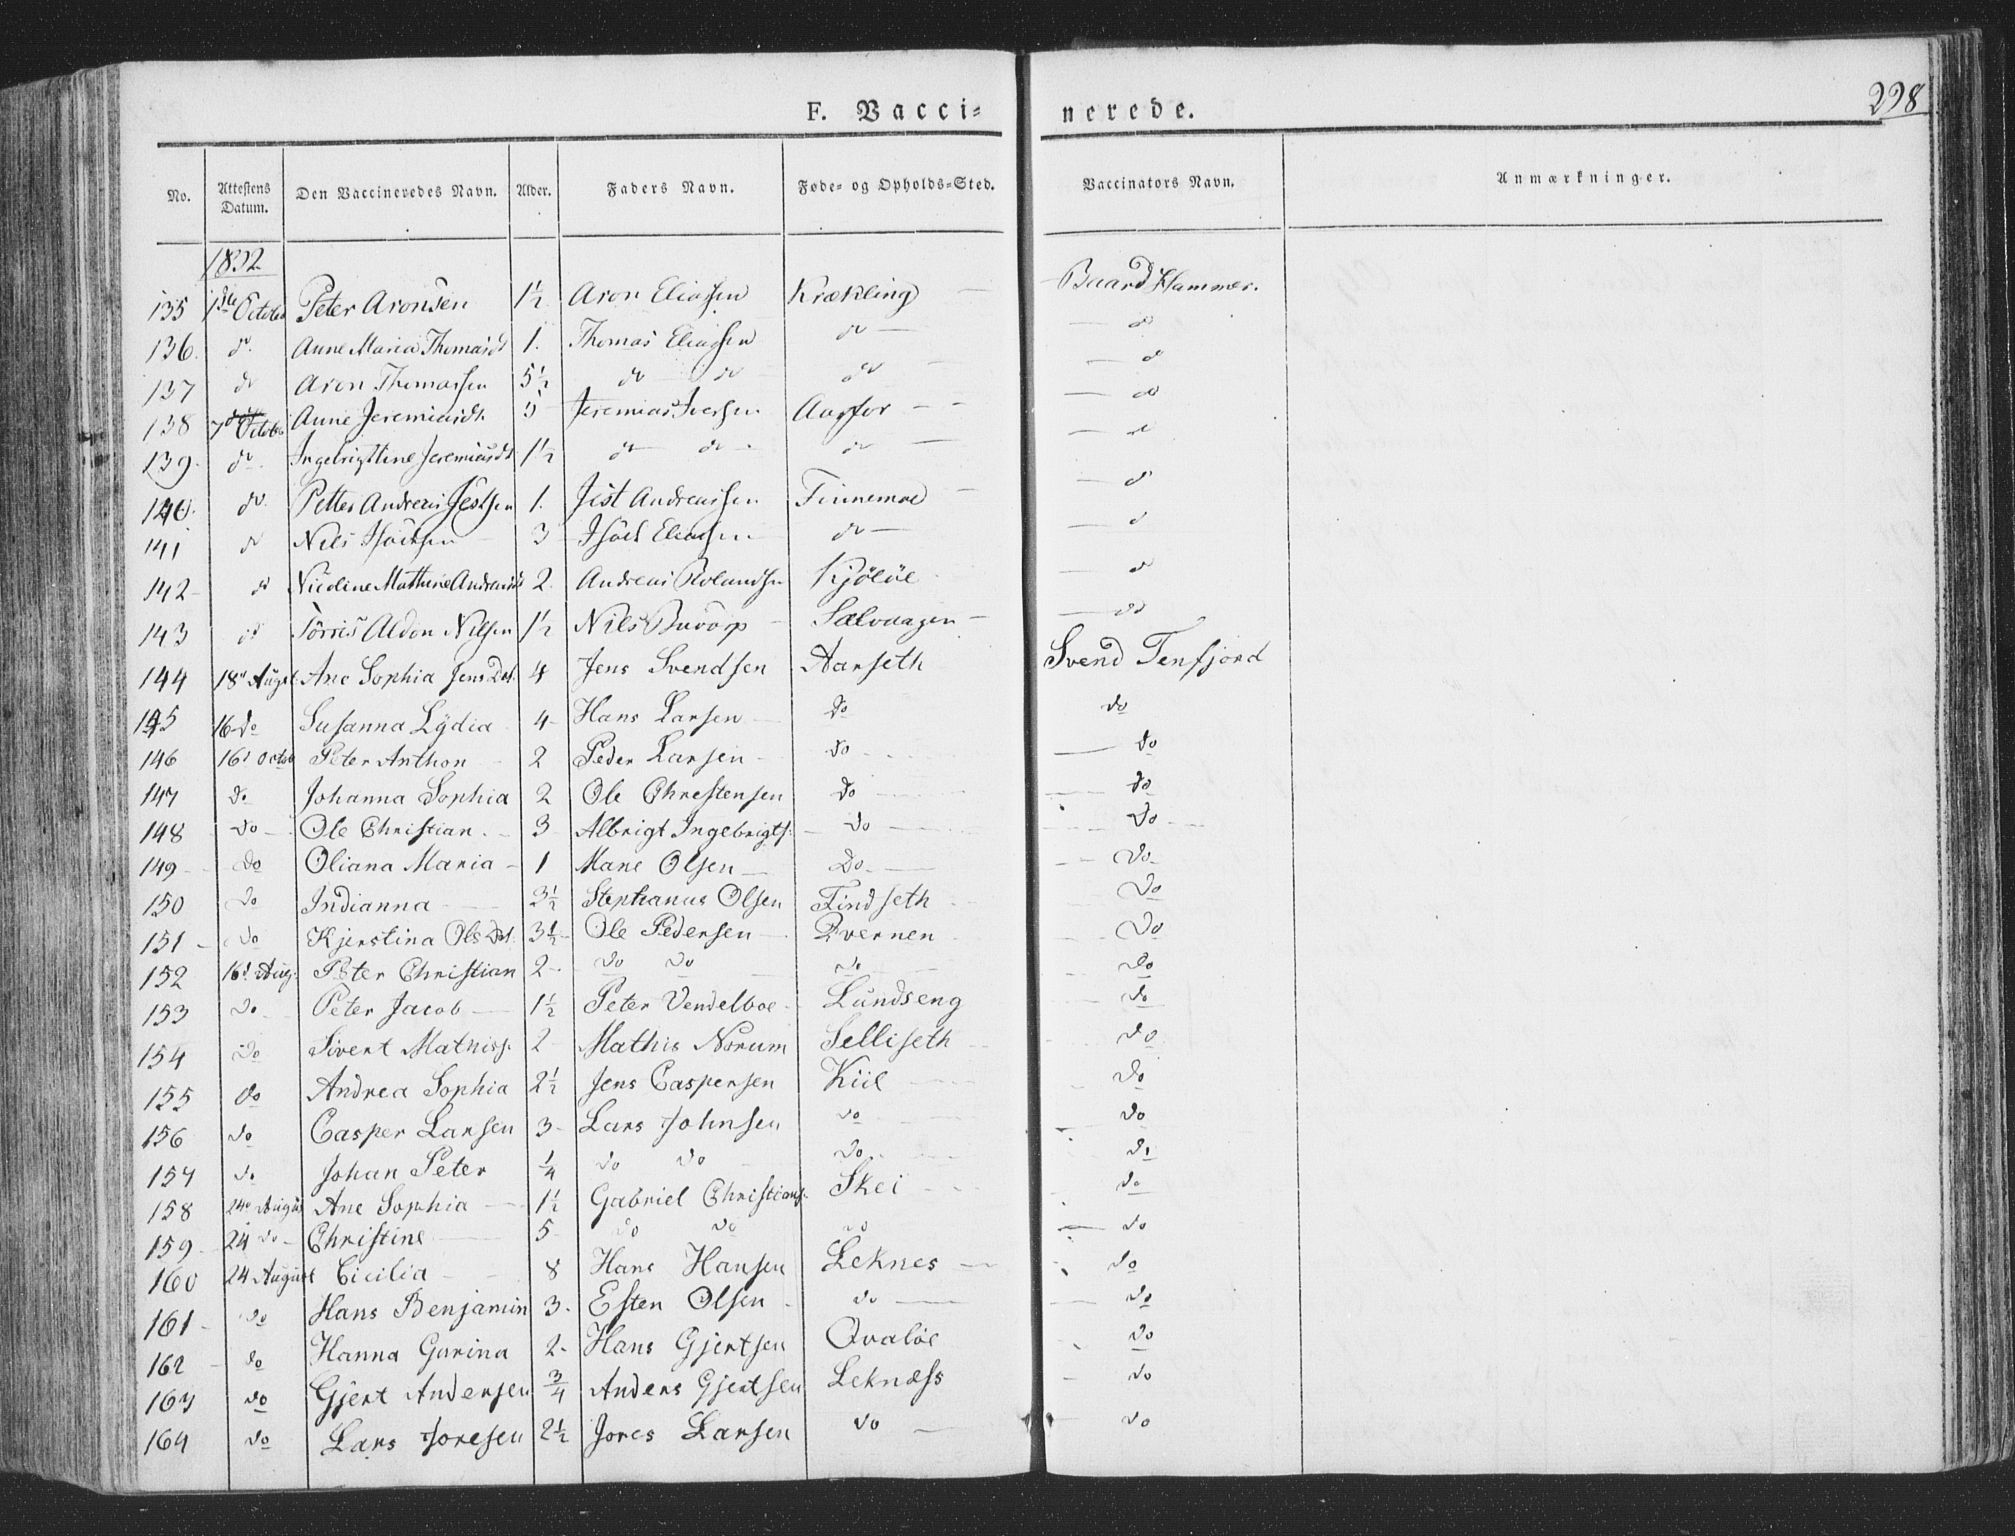 F. Vacci- nerede. 228
No. Attestens Datum. Den Vaccineredes Navn. Alder. Faders Navn. Føde- og Opholds-Sted. Vaccinators Navn. Anmærkninger.
1832
135 1ste October Peter Aronsen 1½ Aron Eliassen Krækling Baard Hammer.
136. do. Anne Maria Thomasdt 1. Thomas Eliassen do do
137 do Aron Thomassen 5½ do do do do
138 7de October Anne Jeremiasdt. 5 Jeremias Iversen Aarfor do
139. do. Ingebrigttine Jeremiasdt 1½ do do do do
140. do. Petter Andreas Jestsen 1. Jest Andreassen Finnemoe do
141 do Nils Isacksen 3 Isack Eliassen do do
142 do Nicoline Mathine Andreasdt 2. Andreas Rolandsen Kjöiöe do
143 do Törris Aldon Nilsen 1½ Nils Buvarp Sælvaagen do
144 18d August Ane Sophia JensDat. 4 Jens Svendsen Aarseth Svend Tenfjord
145 16 do Susanna Lydia 4 Hans Larsen do do
146 16d Octob Peter Anthon 2 Peder Larsen do do
147 do Johanna Sophia 2 Ole Christensen do do
148 do Ole Christian. 3 Albrigt Ingebrigts. do do
149 do Oliana Maria 1 Mane Olsen Do do
150 do Indianna 3½ Stephanus Olsen Findseth do
151 do Kjerstina OlsDat. 3½ Ole Pedersen Qvernen do
152 16d Aug. Peter Christian 2 do do do do
153 do Peter Jacob 1½ Peter Vendelboe Lundseng do
154 do Sivert Mathiss. 2 Mathis Norum Selliseth do
155 do Andrea Sophia 2½ Jens Caspersen Kiil do
156 do Casper Larsen 3 Lars Johnsen do do
157 do Johan Peter ¼ do do do do
158 24d August Ane Sophia 1½ Gabriel Christians. Skei do
159 24 do Christine 5 do do do do
160 24 August Cicilia 8 Hans Hansen Leknes do
161 do Hans Benjamin 3 Esten Olsen do do
162 do Hanna Gurina 2 Hans Gjertsen Qvaløe do
163 do Gjert Andersen ¾ Anders Gjertsen Leknæss do
164 do Lars Joresen 2½ Jores Larsen do do